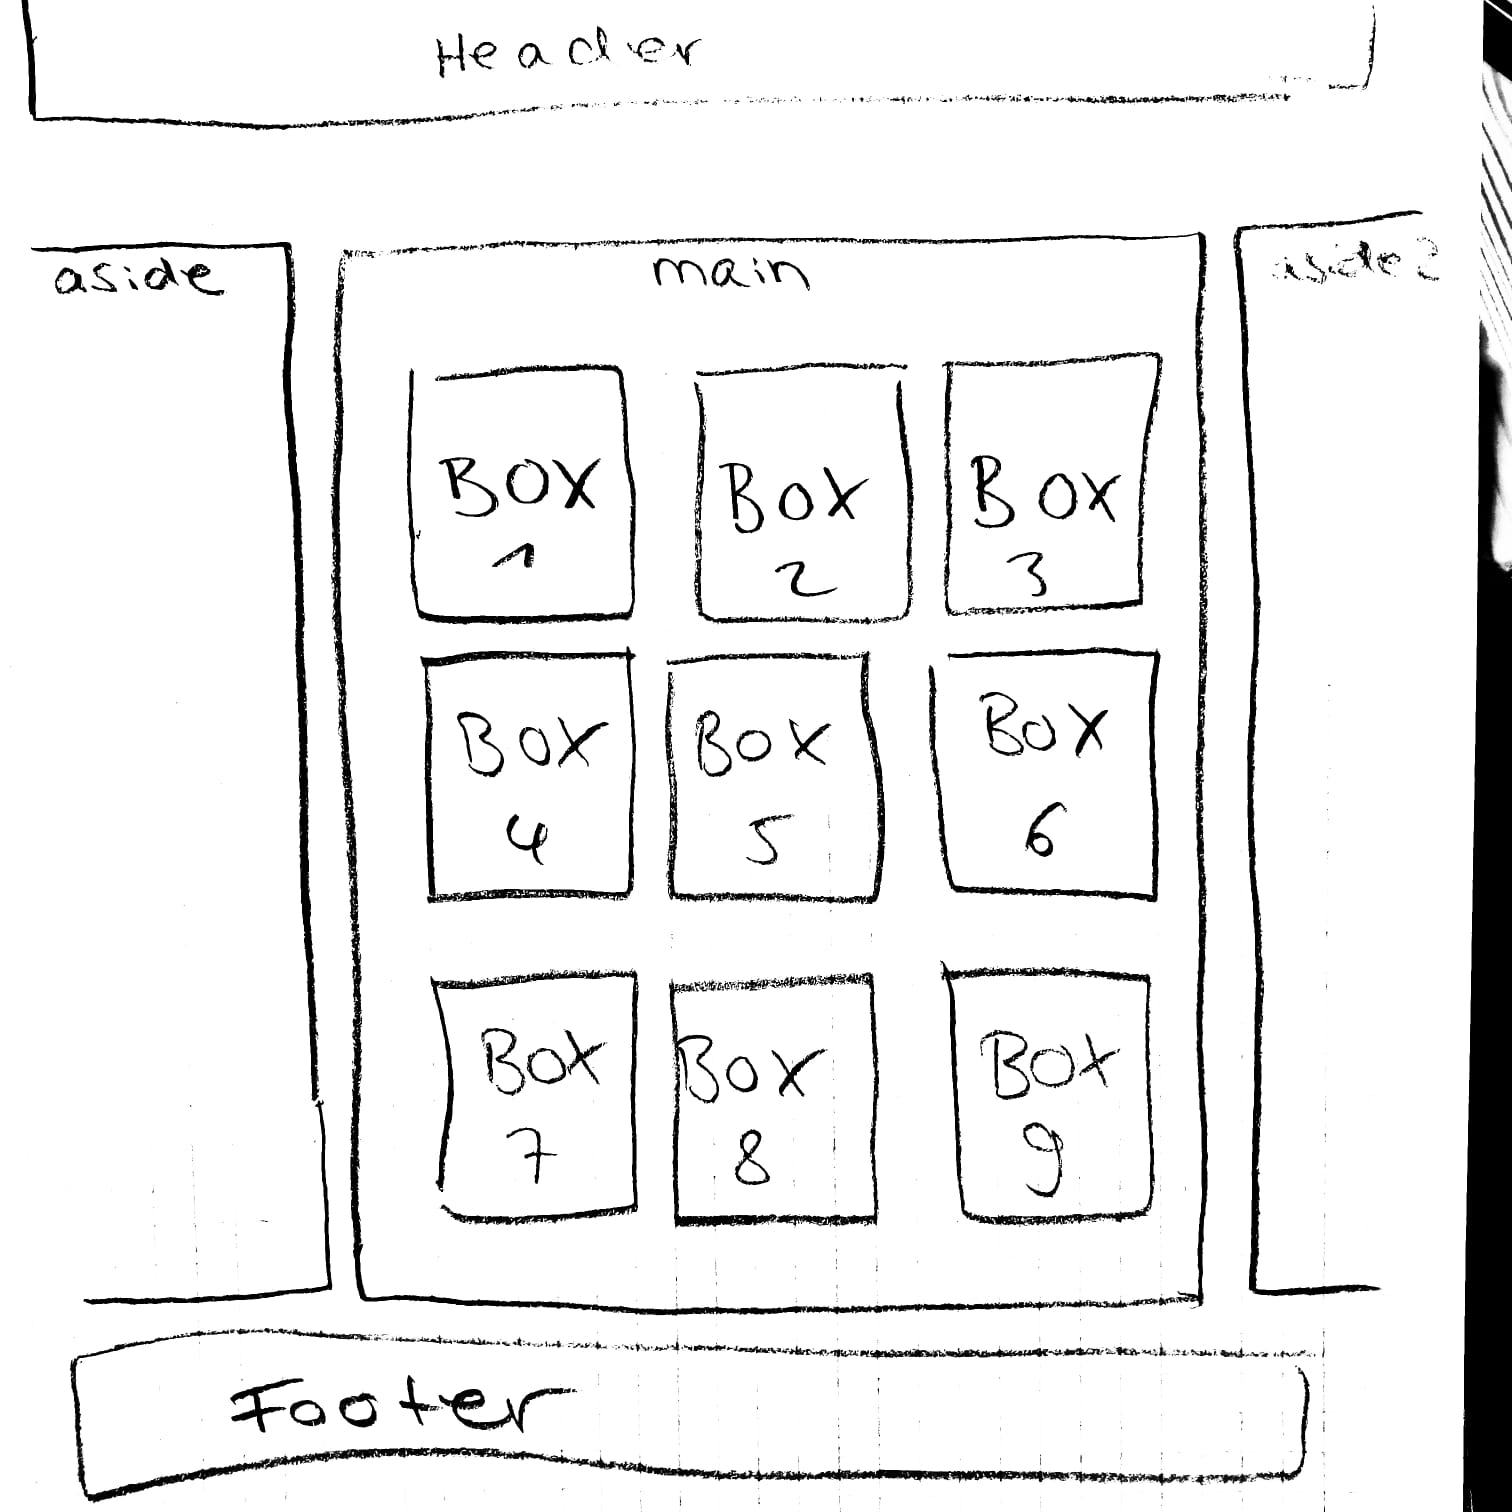 Header
aside
main
aside2
Box
1
Box
2
Box
3
Box
4
Box
5
Box
6
Box
7
Box
8
Box
9
Footer